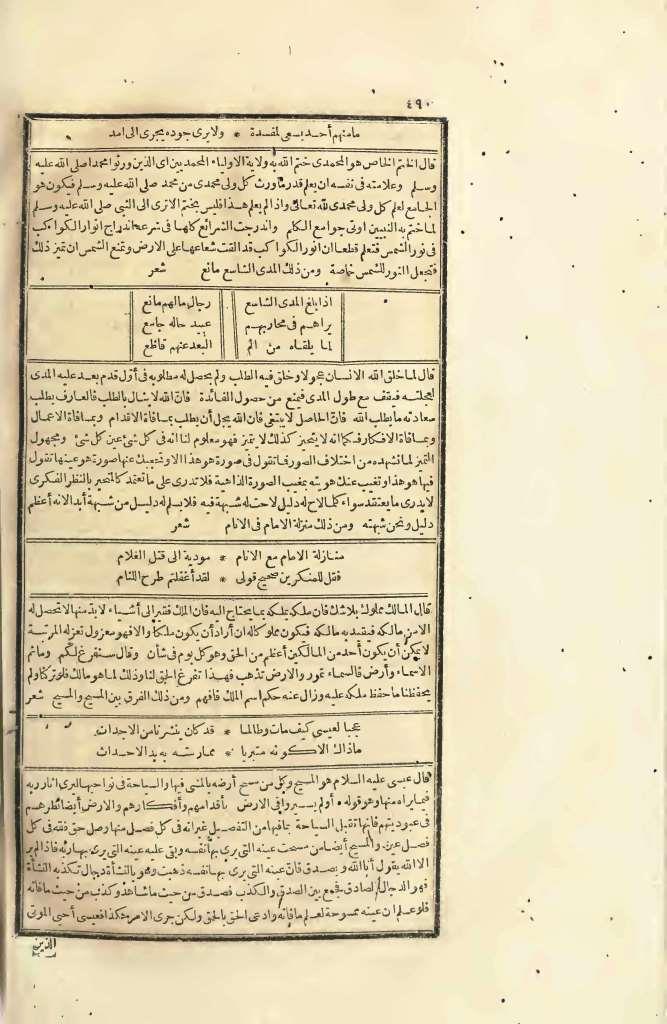 ٤٩٠
مامنهم أحد يسعى لمفسدة * ولا يرى جوده يجرى الى امد
قال الختم الخاص هو المحمدى ختم الله به ولاية الاولياء المحمديين اى الذين ورثوا محمدا صلى الله عليه
وسلم وعلامته فى نفسه ان يعلم قدر ما ورث كل ولى محمدى من محمد صلى الله عليه وسلم فيكون هو
الجامع لعلم كل ولى محمدى لله تعالى واذا لم يعلم هذا فليس بختم الا ترى الى النبى صلى الله عليه وسلم
لما ختم به النبيين اوتى جوامع الكلم واندرجت الشرائع كلها فى شرعه اندراج انوار الكواكب
فى نور الشمس فتعلم قطعا ان انور الكواكب قد القت شعاعها على الارض وتمنع الشمس ان تميز ذلك
فتجعل النور للشمس خاصة ومن ذلك المدى الشاسع مانع شعر
اذا بلغ المدى الشاسع رجال مالهم مانع
يراهم فى محاريبهم عبيد حاله جامع
لما يلقاه من الم البعد عنهم قاطع
قال لما خلق الله الانسان عجولا وخلق فيه الطلب ولم يحصل له مطلوبه فى أول قدم بعد عليه المدى
لعجلته فيقف مع طول المدى فيمنع من حصول الفائدة فان الله لا ينال بالطلب فالعارف يطلب
سعادته ما يطلب الله فان الحاصل لا يبتغى فان الله يجل أن يطلب بمسافة الاقدام وبمسافة الاعمال
وبمسافة الافكار فكما انه لا يتحيز كذلك لا يتميز فهو معلوم لنا انه فى كل شئ عين كل شئ ومجهول
التميز لما نشهده من اختلاف الصور فما تقول فى صورة هو هذا الا وتحجبك عنها صورة هو عينها تقول
فيها هو هذا وتغيب عنك هويته بمغيب الصورة الذاهبة فلا تدرى على ما تعتمد كالمتحير بالنظر الفكرى
لا يدرى ما يعتقد سواء كلما لاح له دليل لاحت له شبهة فيه فلا يسلم له دليل من شبهة أبدا لانه أعظم
دليل ونحن شبهته ومن ذلك منزلة الامام فى الانام شعر
منازلة الامام مع الانام * مودية الى قتل الغلام
فقل للمنكرين صحيح قولى * لقد أغفلتم طرح اللثام
قال المالك مملوك بلا شك فان ملكه يملكه بما يحتاج اليه فان الملك فقير الى أشياء لا بد منها لا تحصل له
الا من مالكه فيقيد به مالكه فيكون مملوكا له ان أراد أن يكون ملكا والا فهو معزول تعزله المرتبة
لا يمكن أن يكون أحد من المالكين أعظم من الحق وهو كل يوم فى شأن وقال سنفرغ لكم وما ثم
الا سماء وأرض فالسماء تمور والارض تذهب فهذا تفرغ الحق لنا وذلك لما هو مالك فلو تركنا ولم
يحفظنا ما حفظ ملكه عليه وزال عنه حكم اسم الملك فافهم ومن ذلك الفرق بين المسيح والمسيح شعر
عجبا لعيسى كيف مات وطالما * قد كان ينشر نا من الاجداث
ماذاك الا كونه متبريا * ممارسته به يد الاحداث
قال عيسى عليه السلام هو المسيح وكل من مسح أرضه بالمشى فيها والسياحة فى نواحيها ليرى اثار ربه
فيما يراه منها وهو قوله . أولم يسيروا فى الارض بأقدامهم وأفكارهم والارض أيضا نظرهم
فى عبوديتهم فانها تقبل السياحة بما فيها من التفصيل غير انه فى كل فصل منها وصل حق ففه فى كل
فصل عين والمسيح أيضا من مسحت عينه التى يرى بها نفسه وبقى عليه عينه التى يرى بها ربه فاذا لم ير
الا الله يقول أنا الله ويصدق فان عينه التى يرى بها نفسه ذهبت وهو بالنشأة دجال تكذبه النشأة
فهو الدجال الصادق فجمع بين الصدق والكذب فصدق من حيث ما شاهد وكذب من حيث ما فاته
فلو علم ان عينه ممسوحة لعلم ما فاته وادعى الحق بالحق ولكن جرى الامر هكذا فعيسى أحيى الموتى
الذين